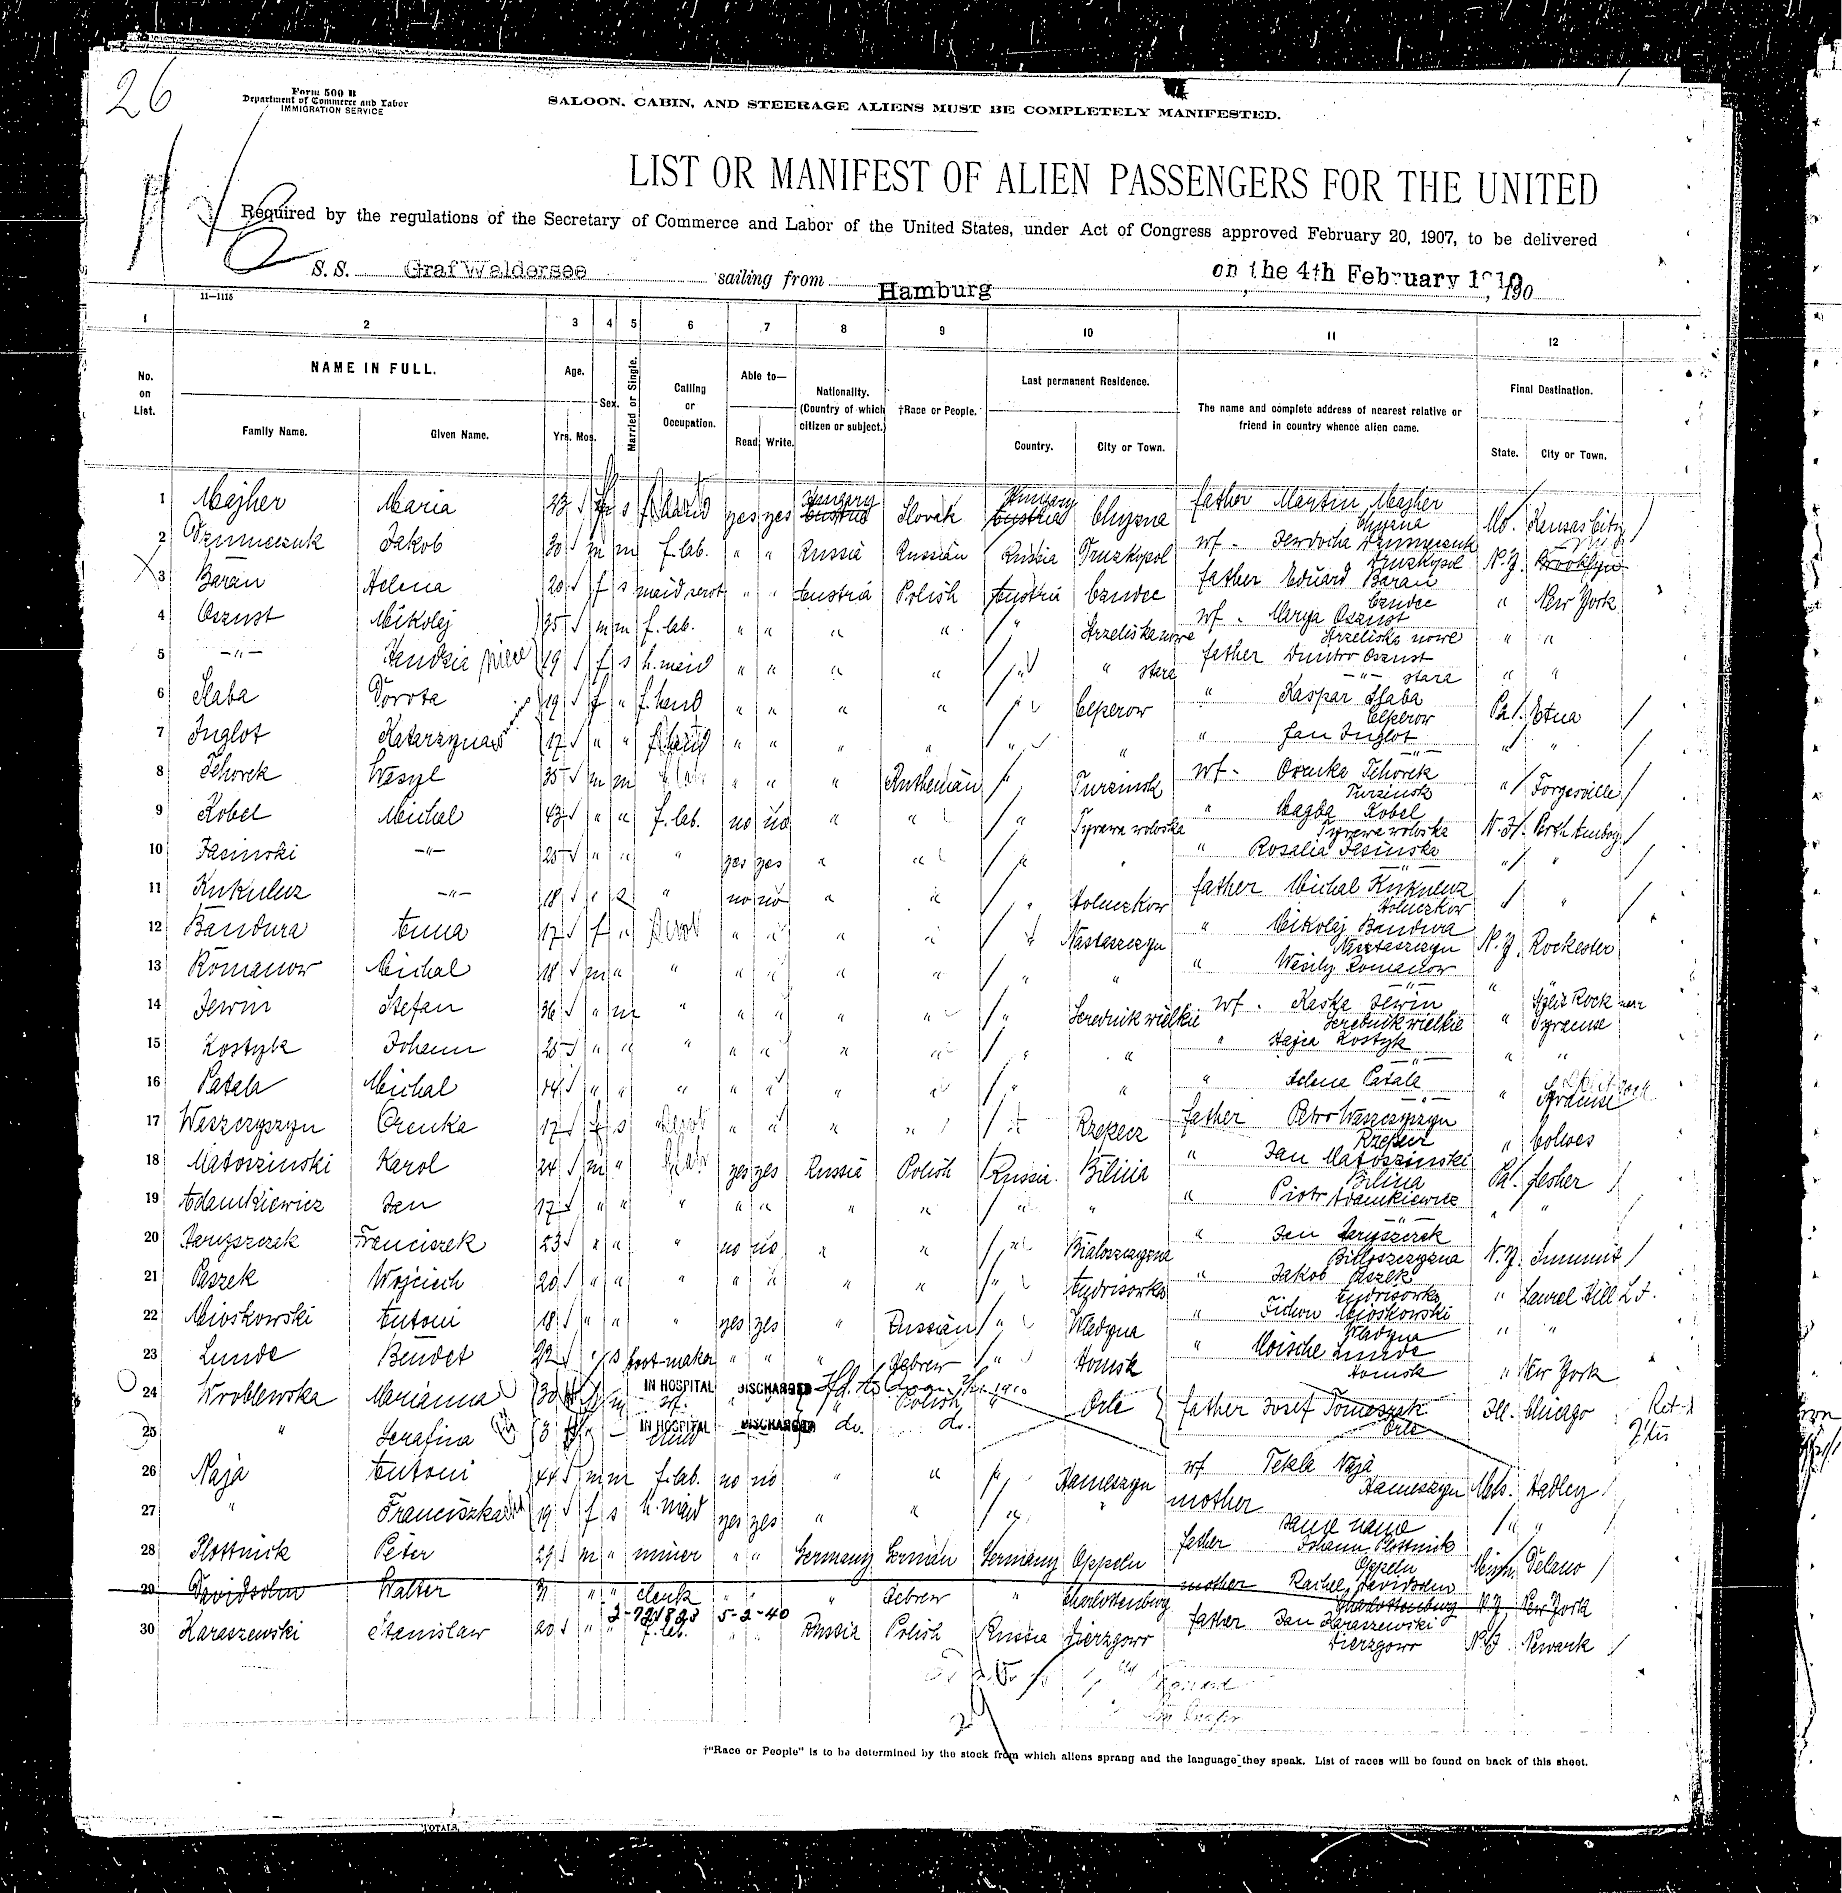 26
Form 500 B
Department of Commerce and Labor
IMMIGRATION SERVICE
SALOON, CABIN, AND STEERAGE ALIENS MUST BE COMPLETELY MANIFESTED.
LIST OR MANIFEST OF ALIEN PASSENGERS FOR THE UNITED
Required by the regulations of the Secretary of Commerce and Labor of the United States, under Act of Congress approved February 20, 1907, to be delivered
S. S. Graf Waldersee sailing from Hamburg on the 4th February 1910, 190
11—1115
1 2 3 4 5 6 7 8 9 10 11 12
No. on List. NAME IN FULL. Family Name. Given Name. Age. Yrs. Mos. Sex. Married or Single. Calling or Occupation. Able to— Read Write. Nationality. (Country of which citizen or subject.) †Race or People. Last permanent Residence. Country. City or Town. The name and complete address of nearest relative or friend in country whence alien came. Final Destination. State. City or Town.
1 Majher Maria 23 f s yes yes Hungary Austria Slovak Hungary Austria Chyzna father Martin Majher Chyzna Mo. Kansas City
2 Jakob 30 m m f. lab. " " Russia Russian Russia Truzkopol wf. Truzkopol N.Y. Brooklyn
3 Baran Helena 20 f s maid servt " " Austria Polish Austria Czudec father Eduard Baran Czudec " New York
4 Oszust Mikolaj 35 m m f. lab. " " " " " Strzeliska nowe wf. Marya Oszust Strzeliska nowe " "
5 —"— Handzia niece 19 f s h. maid " " " " " " stare father Dmitro Oszust —"— stare " "
6 Slaba Dorota 19 f " f. hand " " " " " Cieperow " Kaspar Slaba Cieperow Pa. Etna
7 Inglot Katarzyna 17 " " f. hand " " " " " " " Jan Inglot —"— " "
8 Tehorek Wasyl 35 m m f. lab. " " " Ruthenian " Turzinsk wf. Orenka Tehorek Turzinsk "
9 Kobel Michal 43 " " f. lab. no no " " " Tyrawa woloska " Magda Kobel Tyrawa woloska N.J. Perth Amboy
10 Jasinski —"— 25 " " " yes yes " " " " " Rosalia Jasinska —"— " "
11 Kukulcz —"— 18 " s " no no " " " Holuczkow father Michal Kukulcz Holuczkow " "
12 Bandura Anna 17 f " servt " " " " " Nastaszczyn " Mikolaj Bandura Nastaszczyn N.Y. Rochester
13 Romanow Michal 18 m " " " " " " " " " Wasily Romanow —"— " "
14 Jewin Stefan 36 " m " " " " " " Serednik wielkie wf. Kaska Jewin Serednik wielkie " Split Rock near Syracuse
15 Kostyk Johann 25 " " " " " " " " " " Kostyk —"— " "
16 Patala Michal 44 " " " " " " " " " " Helena Patala —"— " Syracuse
17 Waszczyszyn Orenka 17 f s servt " " " " " Rzepecz father Petro Waszczyszyn Rzepecz " Cohoes
18 Matoszinski Karol 24 m " f. lab. yes yes Russia Polish Russia Bilina " Jan Matoszinski Bilina Pa.
19 Adamkiewicz Jan 17 " " " " " " " " " " Piotr Adamkiewicz —"— " "
20 Jaruszczak Franciszek 23 " " " no no " " " Bialoszczyzna " Jan Jaruszczak Bialloszczyzna N.Y. Summit
21 Paszek Wojciech 20 " " " " " " " " Andrisowka " Jakob Paszek Andrisowka " Laurel Hill L.I.
22 Mioskowski Antoni 18 " " " yes yes " Russian " Wladyna " Tichon Mioskowski Wladyna " "
23 Lunde Bendet 22 " s boot-maker " " " Hebrew " Homsk " Moische Lunde Homsk " New York
24 Wroblewska Marianna 30 f m IN HOSPITAL DISCHARGED " Polish " Orle father Josef Tomaszak Orle Ill. Chicago
25 " Serafina 3 f — IN HOSPITAL child DISCHARGED do. do.
26 Naja Antoni 44 m m f. lab. no no " " " Hameszyn wf Tekla Naja Hameszyn Mass. Hadley
27 " Franciszka 19 f s h. maid yes yes " " " " mother same name " "
28 Plottnick Peter 29 m " miner " " Germany German Germany Oppeln father Johann Plottnick Oppeln Delano
29 Davidsohn Walter 31 " " clerk " " " Hebrew " Charlottenburg mother Rachel Davidsohn Charlottenburg N.Y. New York
2-721823 5-2-40
30 Karaszewski Stanislaw 20 " " f. lab. " " Russia Polish Russia Dierzgowo father Jan Karaszewski Dierzgowo N.J. Newark
29
†"Race or People" is to be determined by the stock from which aliens sprang and the language they speak. List of races will be found on back of this sheet.
TOTALS.